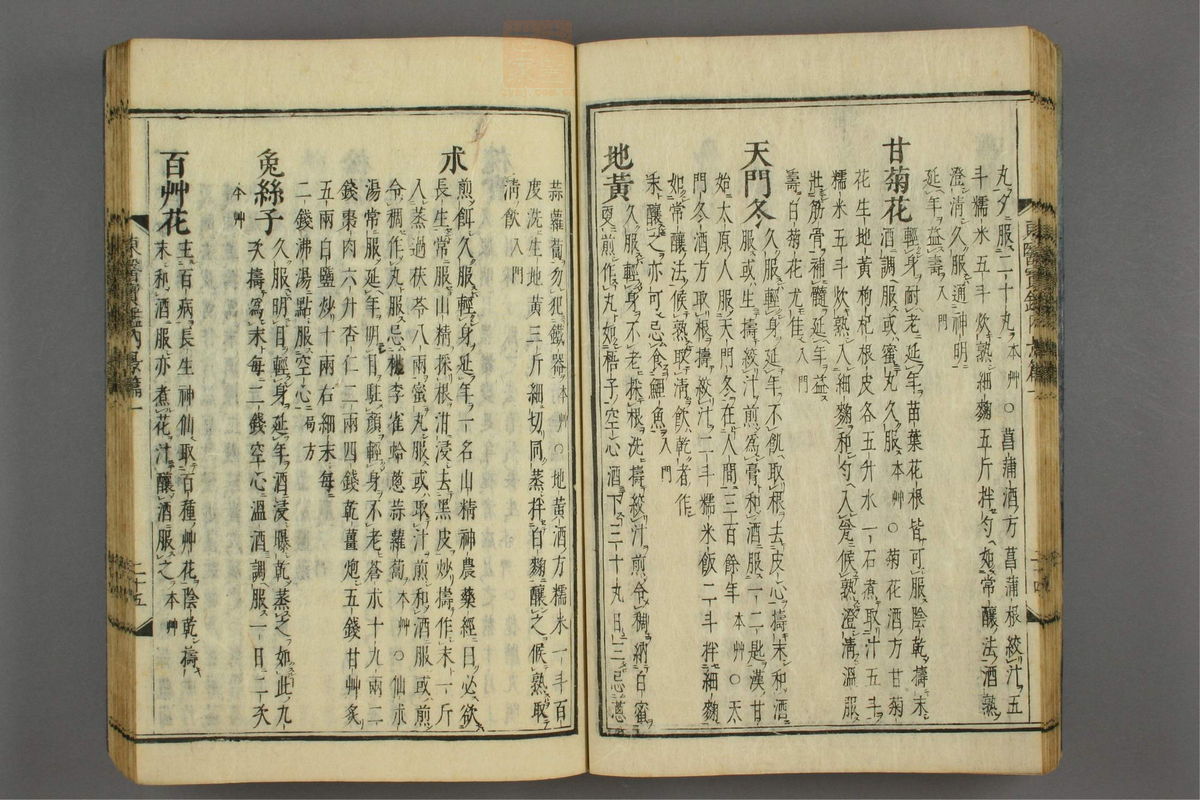 丸夕服二十丸本艸○菖蒲酒方菖蒲根絞汁五
斗糯米五斗炊熟細麴五斤拌勻如常釀法酒熟
澄清久服通神明
延年益壽入門
甘菊花輕身耐老延年苗葉花根皆可服陰乾擣末
酒調服或蜜丸久服本艸○菊花酒方甘菊
花生地黃枸杞根皮各五升水一石煮取汁五斗
糯米五斗炊熟入細麴和勻入瓮候熟澄清溫服
壯筋骨補髓延年益
壽白菊花尤佳入門
天門冬久服輕身延年不飢取根去皮心擣末和酒
服或生擣絞汁煎爲膏和酒服一二匙漢甘
始太原人服天門冬在人間三百餘年本艸○天
門冬酒方取根擣絞汁二斗糯米飯二斗拌細麴
如常釀法候熟取清飲乾者作
末釀之亦可忌食鯉魚入門
地黃久服輕身不老採根洗擣絞汁煎令稠納白蜜
更煎作丸如梧子空心酒下三十丸日三忌葱
蒜蘿蔔勿犯鐵器本艸○地黃酒方糯米一斗百
度洗生地黃三斤細切同蒸拌白麴釀之候熟取
清飲入門
朮煎餌久服輕身延年一名山精神農藥經曰必欲
長生常服山精採根泔浸去黑皮炒擣作末一斤
入蒸過茯苓八兩蜜丸服或取汁煎和酒服或煎
令稠作丸服忌桃李雀蛤葱蒜蘿蔔本艸○仙朮
湯常服延年明目駐顏輕身不老蒼朮十九兩二
錢棗肉六升杏仁二兩四錢乾薑炮五錢甘艸炙
五兩白鹽炒十兩右細末每
二錢沸湯點服空心局方
兔絲子久服明目輕身延年酒浸曝乾蒸之如此九
次擣爲末每二錢空心溫酒調服一日二次
本艸
百艸花主百病長生神仙取百種艸花陰乾擣
末和酒服亦煮花汁釀酒服之本艸
東醫寶鑑內景篇一
二十五